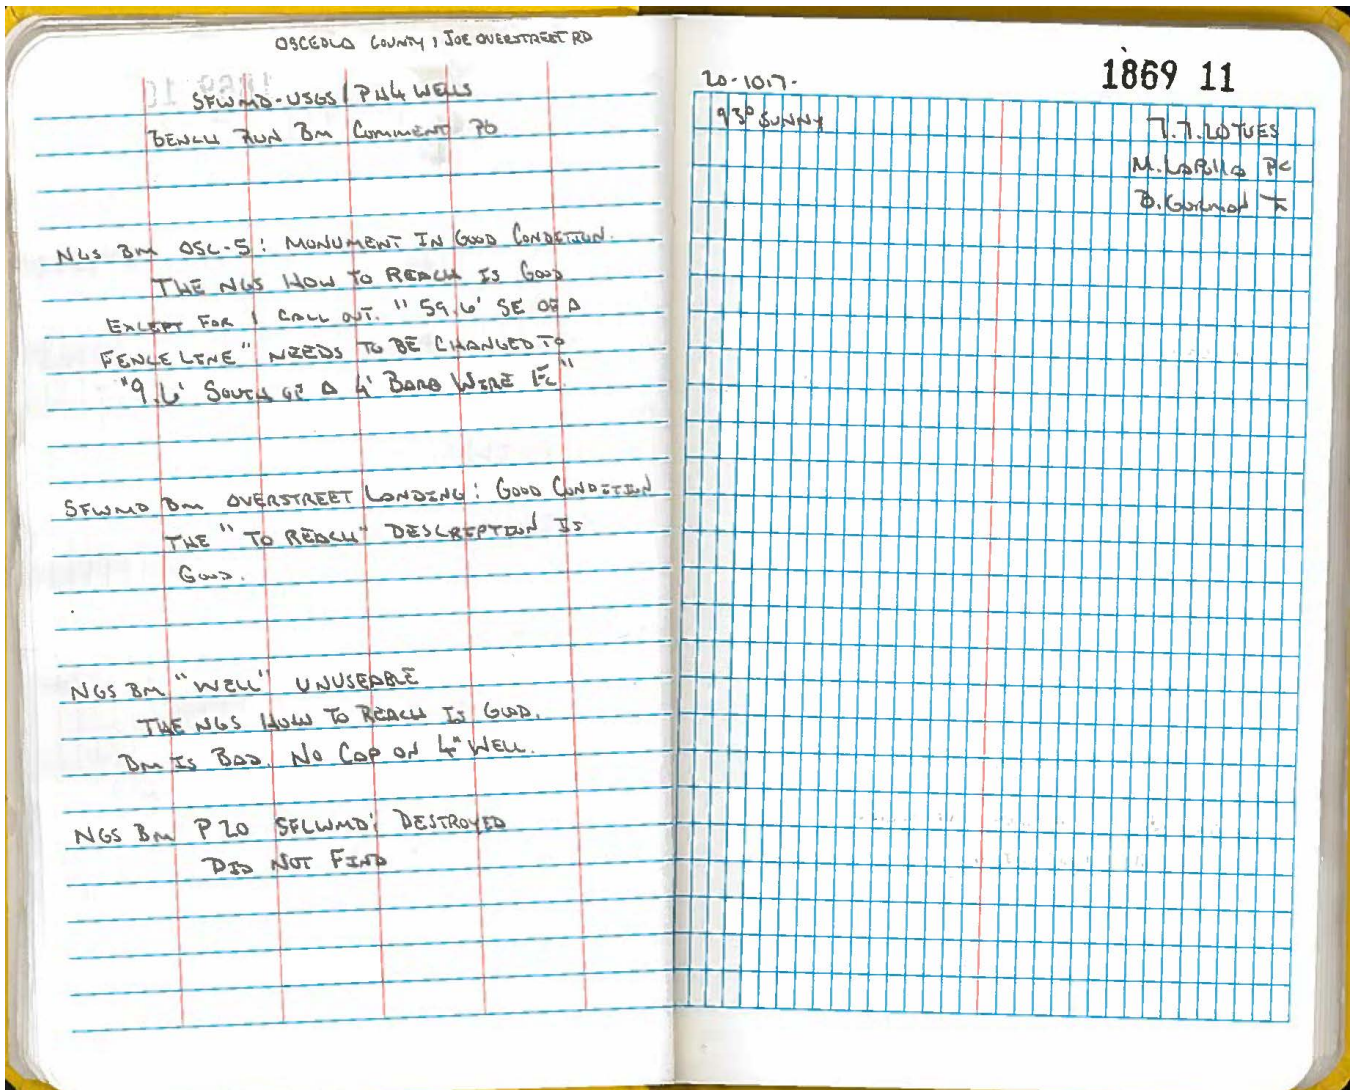 OSCEOLA COUNTY, JOE OVERSTREET RD
SFWMD-USGS / PH4 WELLS
BENCH RUN BM COMMENT PG
NGS BM OSC-5: MONUMENT IN GOOD CONDITION.
THE NGS HOW TO REACH IS GOOD
EXCEPT FOR 1 CALL OUT. "59.6' SE OF A
FENCE LINE" NEEDS TO BE CHANGED TO
"9.6' SOUTH OF A 4' BARB WIRE FC"
SFWMD BM OVERSTREET LANDING: GOOD CONDITION
THE "TO REACH" DESCRIPTION IS
GOOD.
NGS BM "WELL" UNUSEABLE
THE NGS HOW TO REACH IS GOOD.
BM IS BAD. NO CAP ON 4" WELL.
NGS BM P20 SFLWMD: DESTROYED
DID NOT FIND
1869 11
20-1017-
93° SUNNY
7.7.20 TUES
M. PC
B. GORMAN